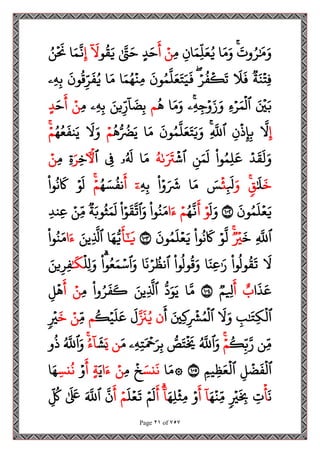 وَمَٰرُوتَۚ وَمَا يُعَلِّمَٰنِ مِنْ أَحَدٍ حَتَّىٰ يَقُولَآ إِنَّمَا نَحْنُ
فِتْنَةٌ فَلَا تَكْفُرْۖ فَيَتَعَلَّمُونَ مِنْهُمَا مَا يُفَرِّقُونَ بِهِۦ
بَيْنَ ٱلْمَرْءِ وَزَوْجِهِۦۚ وَمَا هُم بِضَآرِّينَ بِهِۦ مِنْ أَحَدٍ
إِلَّا بِإِذْنِ ٱللَّهِۚ وَيَتَعَلَّمُونَ مَا يَضُرُّهُمْ وَلَا يَنفَعُهُمْۚ
وَلَقَدْ عَلِمُواْ لَمَنِ ٱشْتَرَىٰهُ مَا لَهُۥ فِى ٱلْأَخِرَةِ مِنْ
خَلَٰقٍۚ وَلَبِئْسَ مَا شَرَوْاْ بِهِۦٓ أَنفُسَهُمْۚ لَوْ كَانُواْ
يَعْلَمُونَ ١٠١ وَلَوْ أَنَّهُمْ ءَامَنُواْ وَٱتَّقَوْاْ لَمَثُوبَةٌ مِّنْ عِندِ
ٱللَّهِ خَيْرٌۚ لَّوْ كَانُواْ يَعْلَمُونَ ١٠٢ يَٰٓأَيُّهَا ٱلَّذِينَ ءَامَنُواْ
لَا تَقُولُواْ رَٰعِنَا وَقُولُواْ ٱنظُرْنَا وَٱسْمَعُواْۗ وَلِلْكَٰفِرِينَ
عَذَابٌ أَلِيمٌ ١٠٣ مَّا يَوَدُّ ٱلَّذِينَ كَفَرُواْ مِنْ أَهْلِ
ٱلْكِتَٰبِ وَلَا ٱلْمُشْرِكِينَ أَن يُنَزَّلَ عَلَيْكُم مِّنْ خَيْرٍ
مِّن رَّبِّكُمْۚ وَٱللَّهُ يَخْتَصُّ بِرَحْمَتِهِۦ مَن يَشَآءُۚ وَٱللَّهُ ذُو
ٱلْفَضْلِ ٱلْعَظِيمِ ١٠٤ ۞ مَا نَنسَخْ مِنْ ءَايَةٍ أَوْ نُنسِهَا
نَأْتِ بِخَيْرٍ مِّنْهَآ أَوْ مِثْلِهَآۗ أَلَمْ تَعْلَمْ أَنَّ ٱللَّهَ عَلَىٰ كُلِّ
Page ٢١ of ٧٥٧